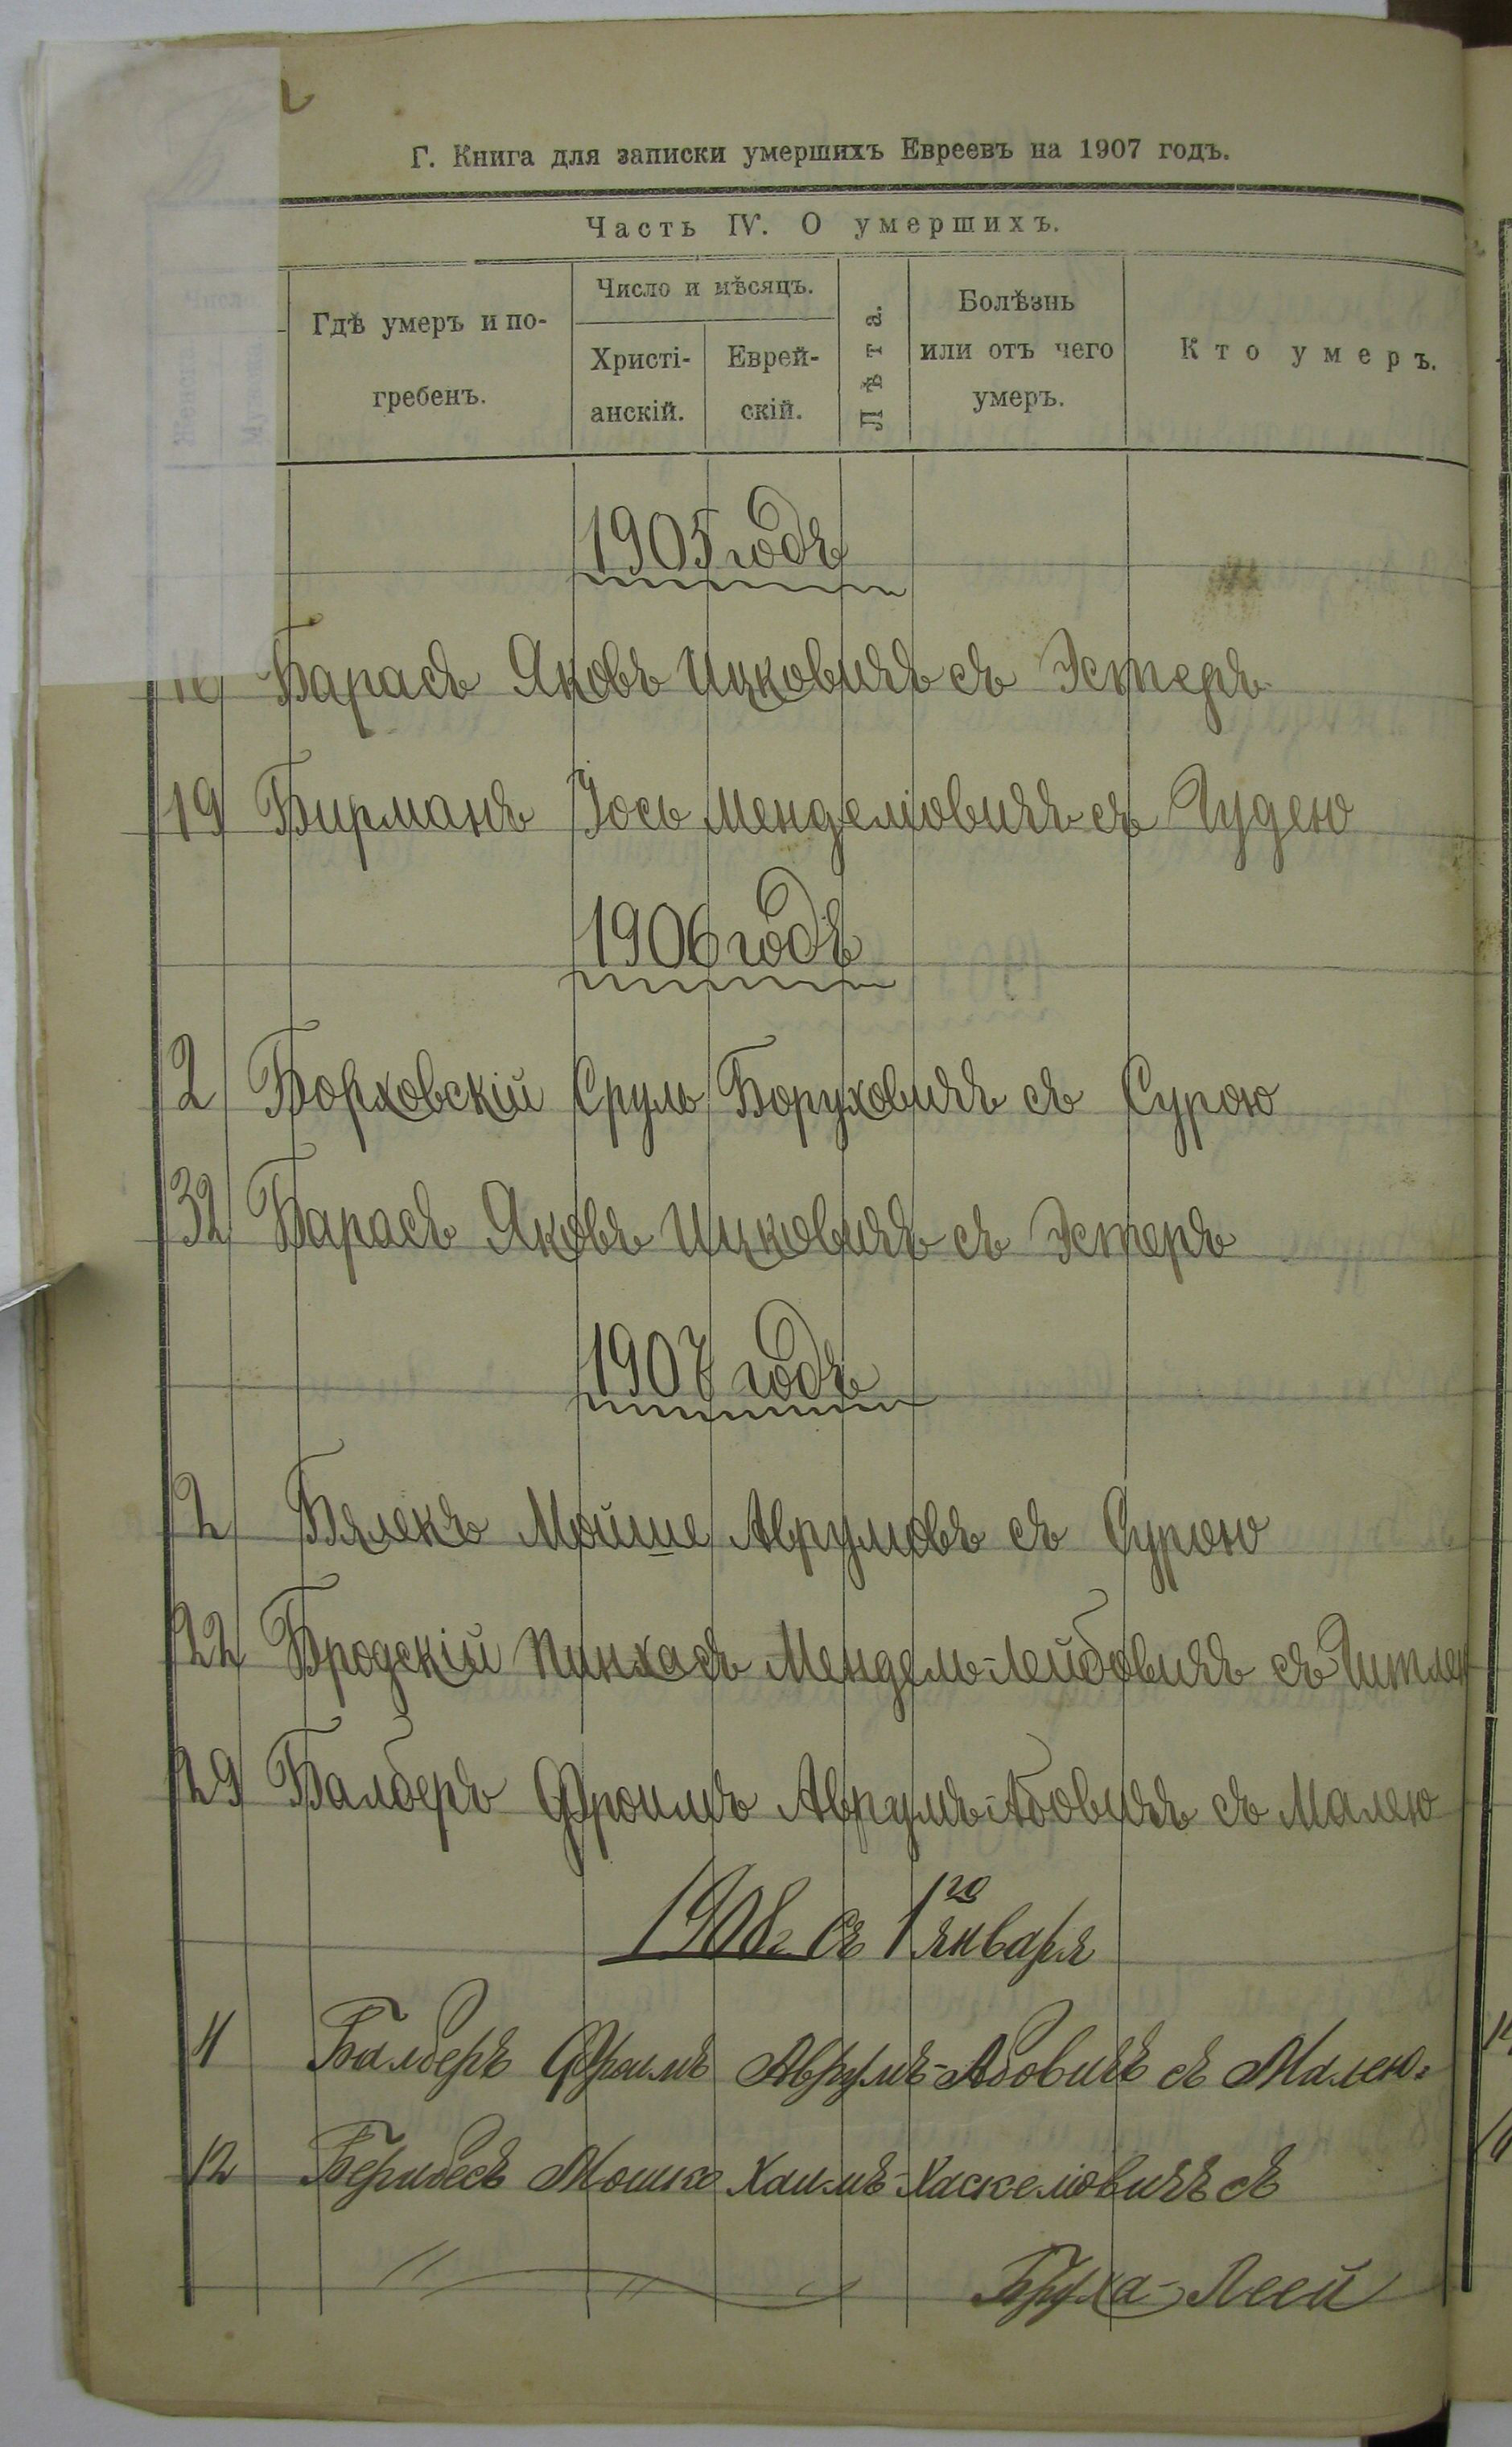 Г. Книга для записки умершихъ Евреевъ на 1907 годъ.
Часть IV. О умершихъ.
Гдѣ умеръ и по-
гребенъ.
Число и мѣсяцъ.
Христі-
анскій.
Еврей-
скій.
Лѣта.
Болѣзнь
или отъ чего
умеръ.
Кто умеръ.
1905 годъ
Барасъ Яковъ Ицковичъ съ Эстеръ
19 Бирманъ Іось Менделіовичъ съ Гудею
1906 годъ
2 Борховскій Сруль Боруховичъ съ Сурою
32 Барасъ Яковъ Ицковичъ съ Эстеръ
1907 годъ
2 Бялекъ Мойше Аврумовъ съ Сурою
22 Бродскій Пинхасъ Мендель-Лейбовичъ съ Гитлею
29 Балберъ Фроимъ Аврумъ-Абовичъ съ Малею
1908 г. съ 1го января
4 Балберъ Фроимъ Аврумъ-Абовичъ съ Малею.
12 Мошко Хаимъ-Хаскеліовичъ съ
Бруха-Леей